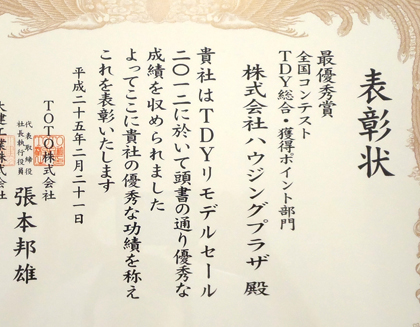 表彰状
最優秀賞
全国コンテスト
TDY総合・獲得ポイント部門
株式会社ハウジングプラザ 殿
貴社はTDYリモデルセール
二〇一二に於いて頭書の通り優秀な
成績を収められました
よってここに貴社の優秀な功績を称え
これを表彰いたします
平成二十五年二月二十一日
TOTO株式会社
代表取締役
社長執行役員
張本邦雄
大建工業株式会社